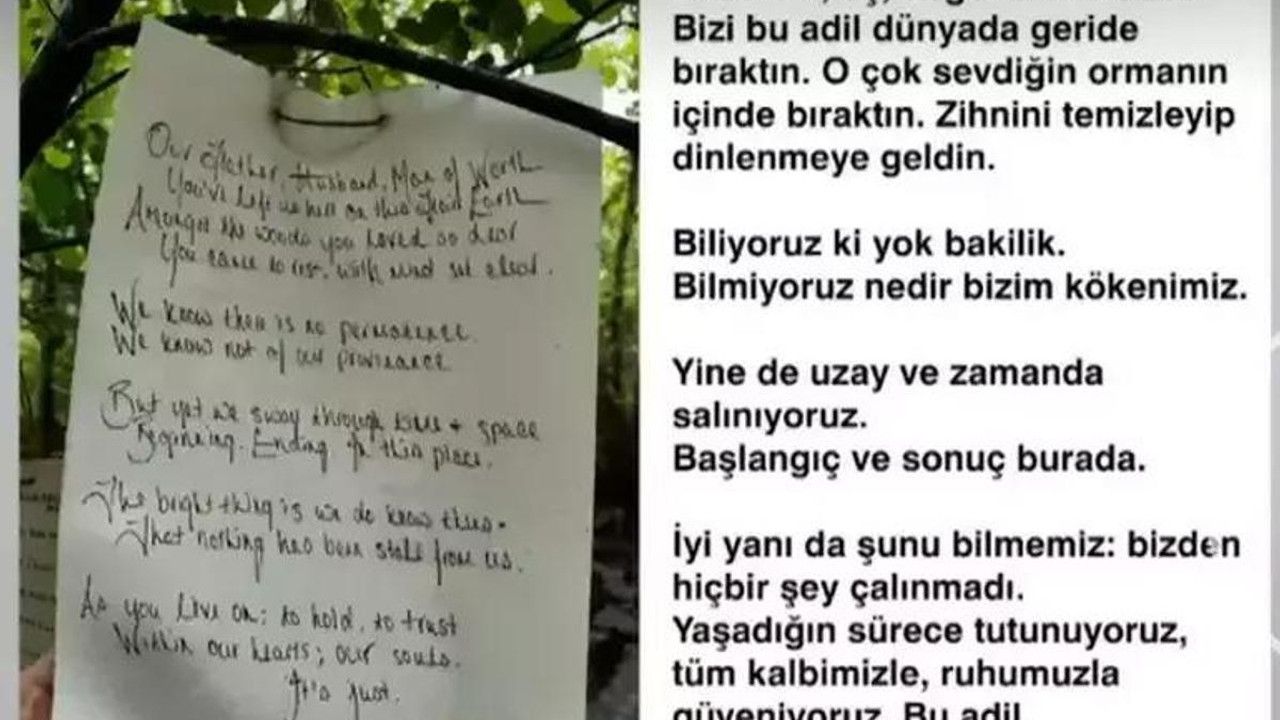 Our Father, Husband, Man of Worth
You've left us here on this Fair Earth
Amongst the woods you loved so dear
You came to rest, with mind set clear.
We know there is no permanence.
We know not of our provenance
But yet we sway through time + space
Beginning. Ending in this place.
The bright thing is we do know thus.
That nothing has been stole from us.
As you live on; to hold, to trust
Within our hearts; our souls.
It's just.
Bizi bu adil dünyada geride
bıraktın. O çok sevdiğin ormanın
içinde bıraktın. Zihnini temizleyip
dinlenmeye geldin.
Biliyoruz ki yok bakilik.
Bilmiyoruz nedir bizim kökenimiz.
Yine de uzay ve zamanda
salınıyoruz.
Başlangıç ve sonuç burada.
İyi yanı da şunu bilmemiz: bizden
hiçbir şey çalınmadı.
Yaşadığın sürece tutunuyoruz,
tüm kalbimizle, ruhumuzla
güveniyoruz. Bu adil.